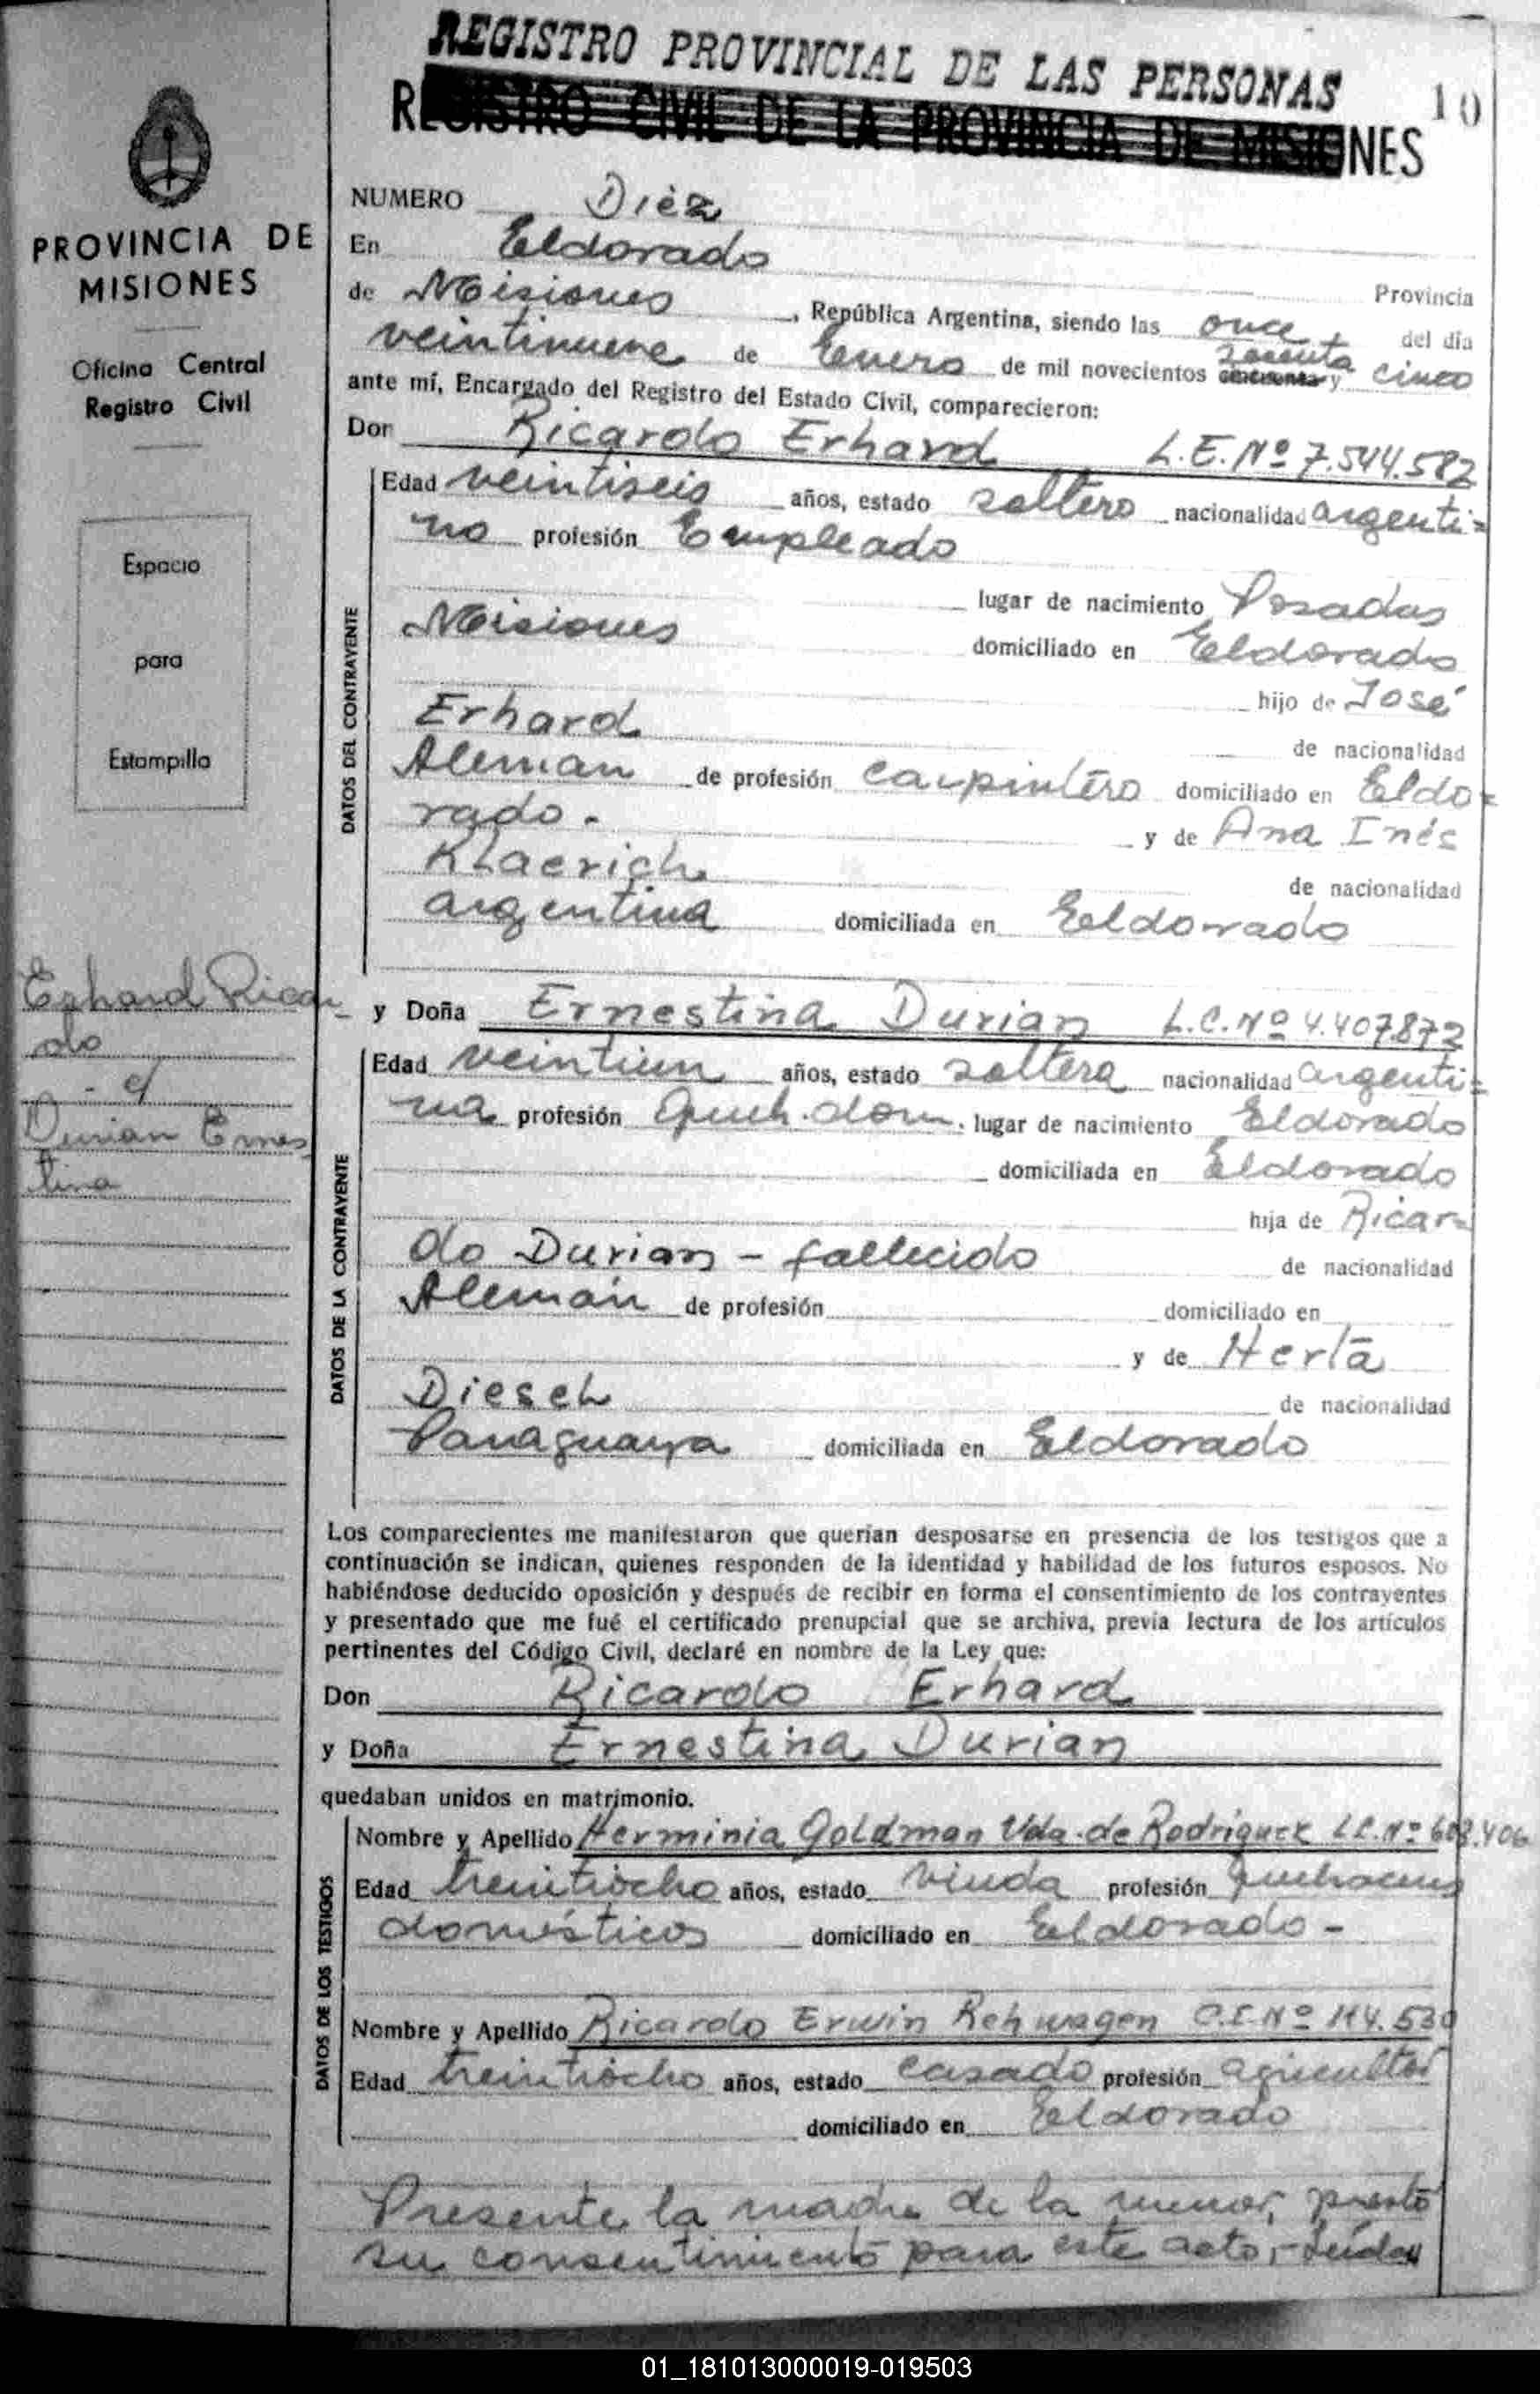 REGISTRO PROVINCIAL DE LAS PERSONAS
REGISTRO CIVIL DE LA PROVINCIA DE MISIONES
10
PROVINCIA DE
MISIONES
Oficina Central
Registro Civil
Espacio
para
Estampilla
Erhard Ricar
do
c/
Durian Ernes
tina
NUMERO Diéz
En Eldorado
Provincia
de Misiones, República Argentina, siendo las once del día
veintinueve de Enero de mil novecientos sesenta y cinco
ante mí, Encargado del Registro del Estado Civil, comparecieron:
Don Ricardo Erhard L.E.Nº 7.544.582
DATOS DEL CONTRAYENTE
Edad veintiseis años, estado soltero nacionalidad argenti=
no profesión Empleado
lugar de nacimiento Posadas
Misiones domiciliado en Eldorado
hijo de José
Erhard de nacionalidad
Alemán de profesión carpintero domiciliado en Eldo=
rado.- y de Ana Inés
Klaerich de nacionalidad
argentina domiciliada en Eldorado
y Doña Ernestina Durian L.C.Nº 4.407.872
DATOS DE LA CONTRAYENTE
Edad veintiun años, estado soltera nacionalidad argenti=
na profesión Queh. dom. lugar de nacimiento Eldorado
domiciliada en Eldorado
hija de Ricar=
do Durian - fallecido de nacionalidad
Alemán de profesión domiciliado en
y de Herta
Diesel de nacionalidad
Paraguaya domiciliada en Eldorado
Los comparecientes me manifestaron que querían desposarse en presencia de los testigos que a
continuación se indican, quienes responden de la identidad y habilidad de los futuros esposos. No
habiéndose deducido oposición y después de recibir en forma el consentimiento de los contrayentes
y presentado que me fué el certificado prenupcial que se archiva, previa lectura de los artículos
pertinentes del Código Civil, declaré en nombre de la Ley que:
Don Ricardo Erhard
y Doña Ernestina Durian
quedaban unidos en matrimonio.
DATOS DE LOS TESTIGOS
Nombre y Apellido Herminia Goldman Vda. de Rodriguez L.C.Nº 608.406
Edad treintiocho años, estado viuda profesión Quehaceres
domésticos domiciliado en Eldorado -
Nombre y Apellido Ricardo Erwin Rehwagen C.I.Nº 114.530
Edad treintiocho años, estado casado profesión agricultor
domiciliado en Eldorado
Presente la madre de la menor, prestó
su consentimiento para este acto,- Leída
01_181013000019-019503